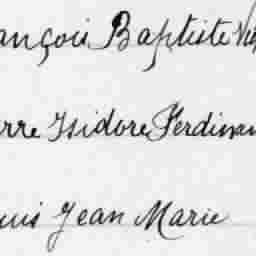 ançois Baptiste Vic
rre Isidore Ferdinan
ouis Jean Marie